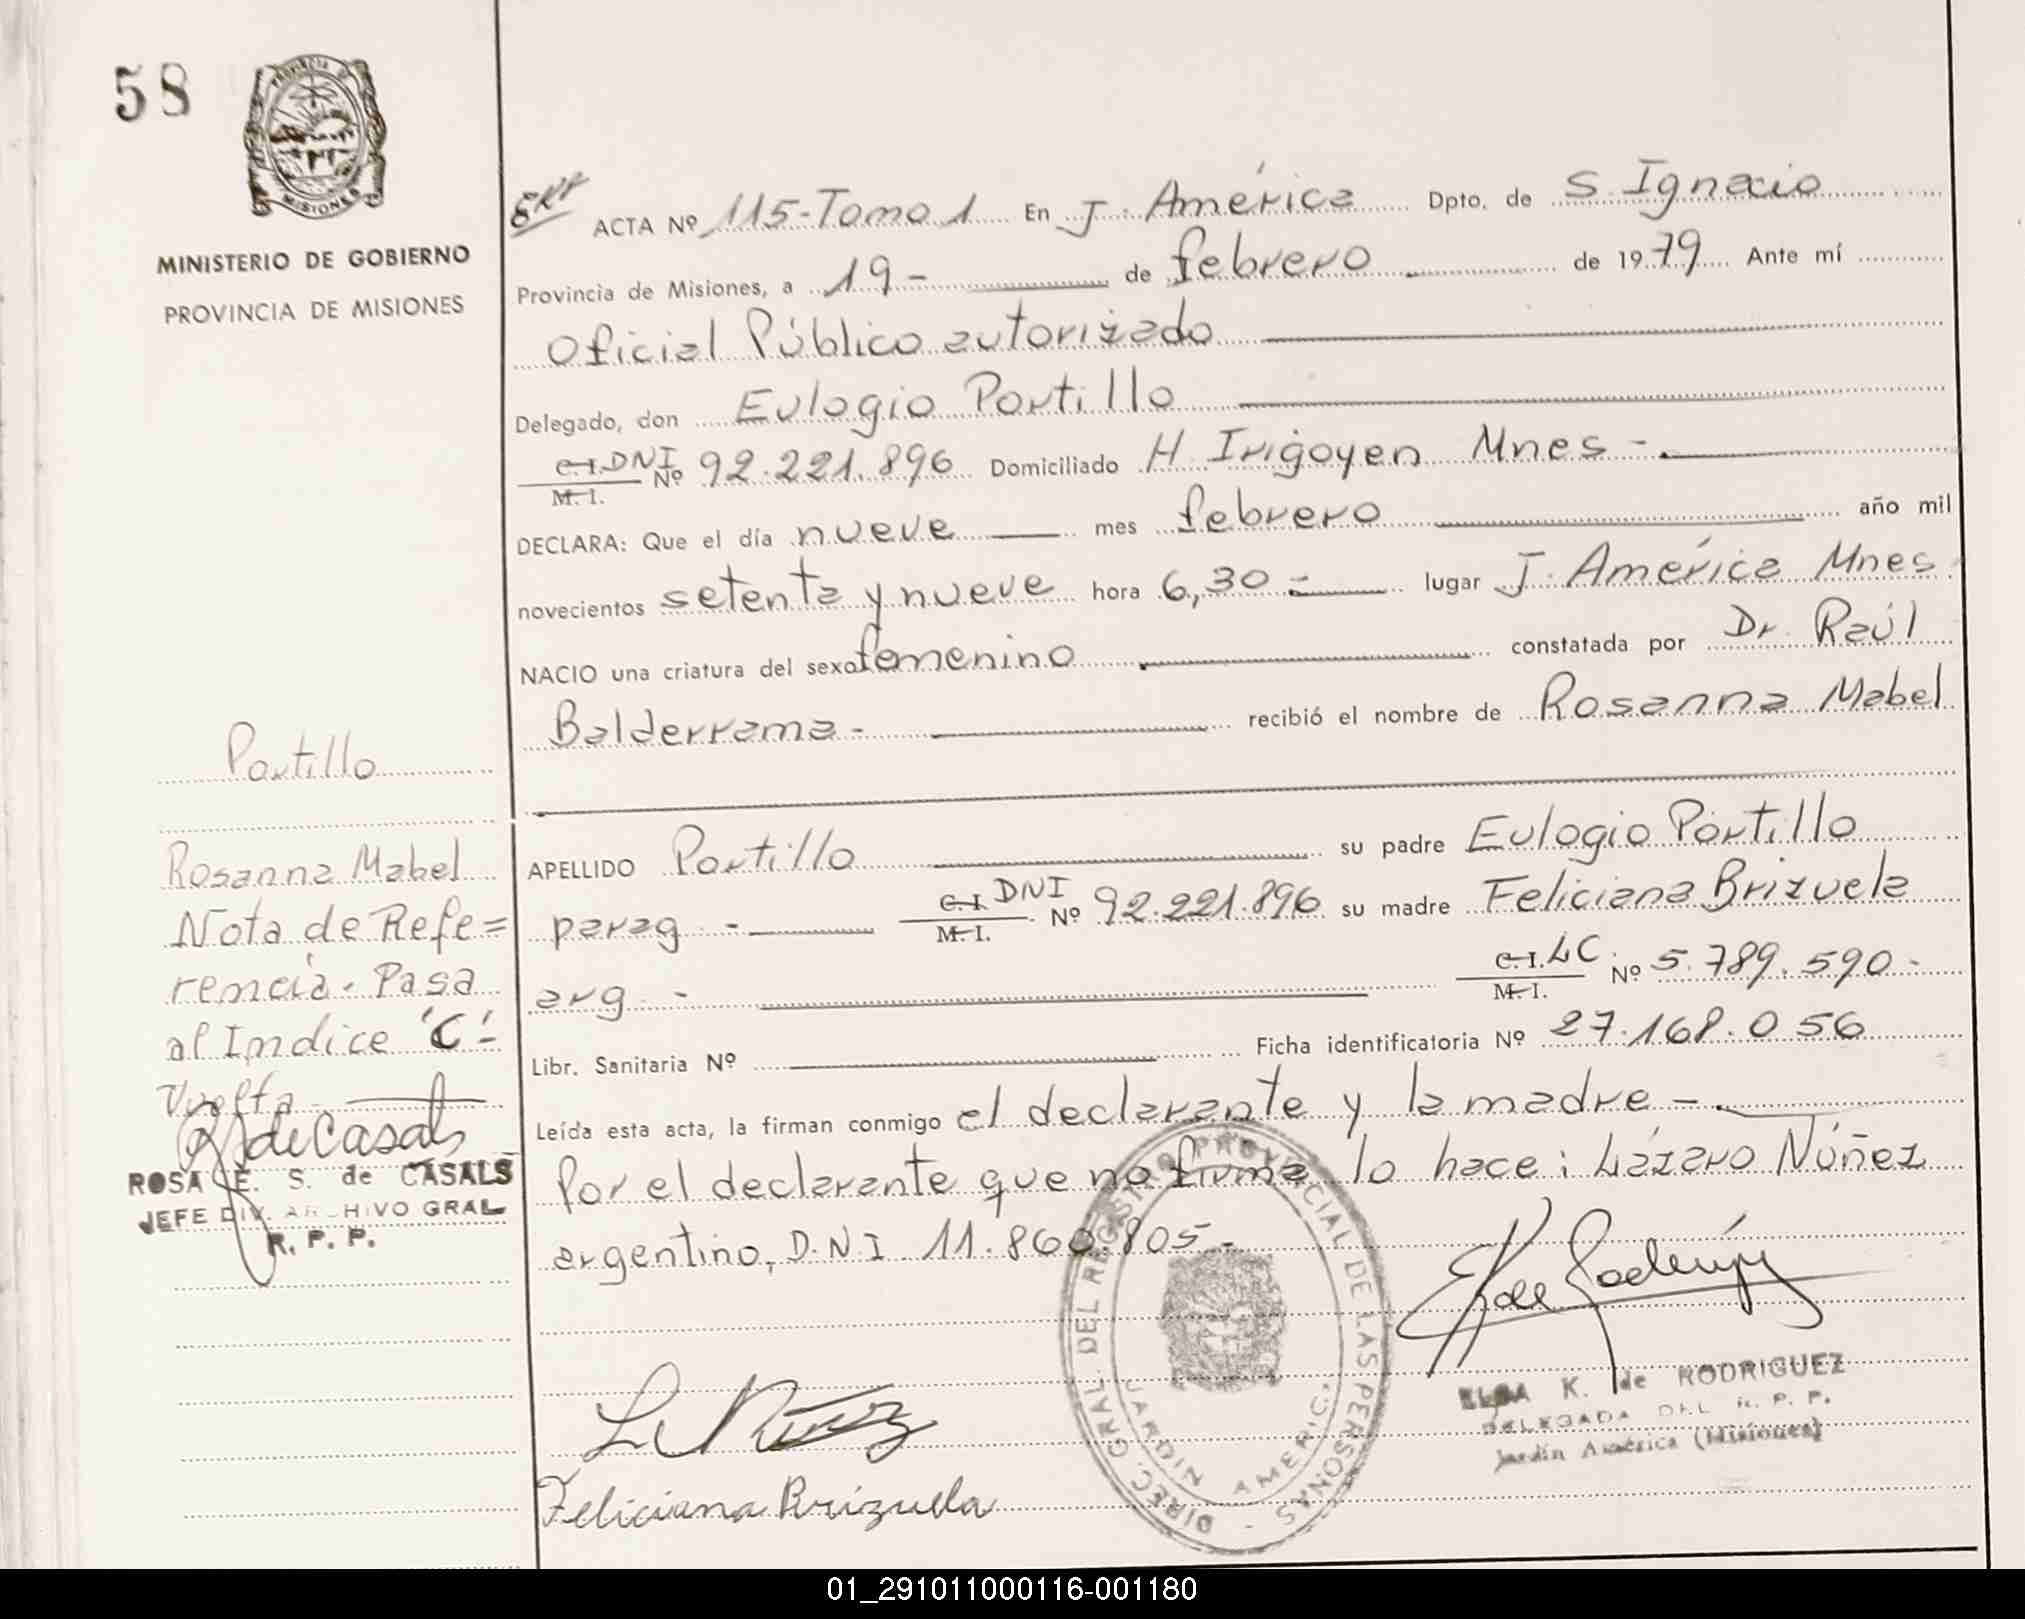 58
PROVINCIA DE
MISIONES
MINISTERIO DE GOBIERNO
PROVINCIA DE MISIONES
ACTA Nº 115-Tomo 1 En J. América Dpto. de S. Ignacio
Provincia de Misiones, a 19- de febrero de 1979 Ante mí
Oficial Público autorizado
Delegado, don Eulogio Portillo
C.I. DNI Nº 92.221.896 Domiciliado H. Irigoyen Mnes -
M. I.
DECLARA: Que el día nueve mes febrero año mil
novecientos setenta y nueve hora 6,30 - lugar J. América Mnes
NACIO una criatura del sexo femenino constatada por Dr. Raúl
Balderrama - recibió el nombre de Rosanna Mabel
APELLIDO Portillo su padre Eulogio Portillo
parag - C.I. DNI Nº 92.221.896 su madre Feliciana Brizuela
M. I.
arg - C.I. LC Nº 5.789.590 -
M. I.
Libr. Sanitaria Nº Ficha identificatoria Nº 27.168.056
Leída esta acta, la firman conmigo el declarante y la madre -
Por el declarante que no firma lo hace: Lázaro Núñez
argentino, D.N.I 11.860.805 -
Portillo
Rosanna Mabel
Nota de Refe=
rencia - Pasa
al Indice "C" -
Vuelta
RS de Casals
ROSA E. S. de CASALS
JEFE DIV. ARCHIVO GRAL
R. P. P.
L Núñez
Feliciana Brizuela
DIREC. GRAL. DEL REGISTRO PROVINCIAL DE LAS PERSONAS -
JARDIN AMERICA
K de Rodríguez
ELSA K. de RODRIGUEZ
DELEGADA DEL R. P. P.
Jardín América (Misiones)
01_291011000116-001180